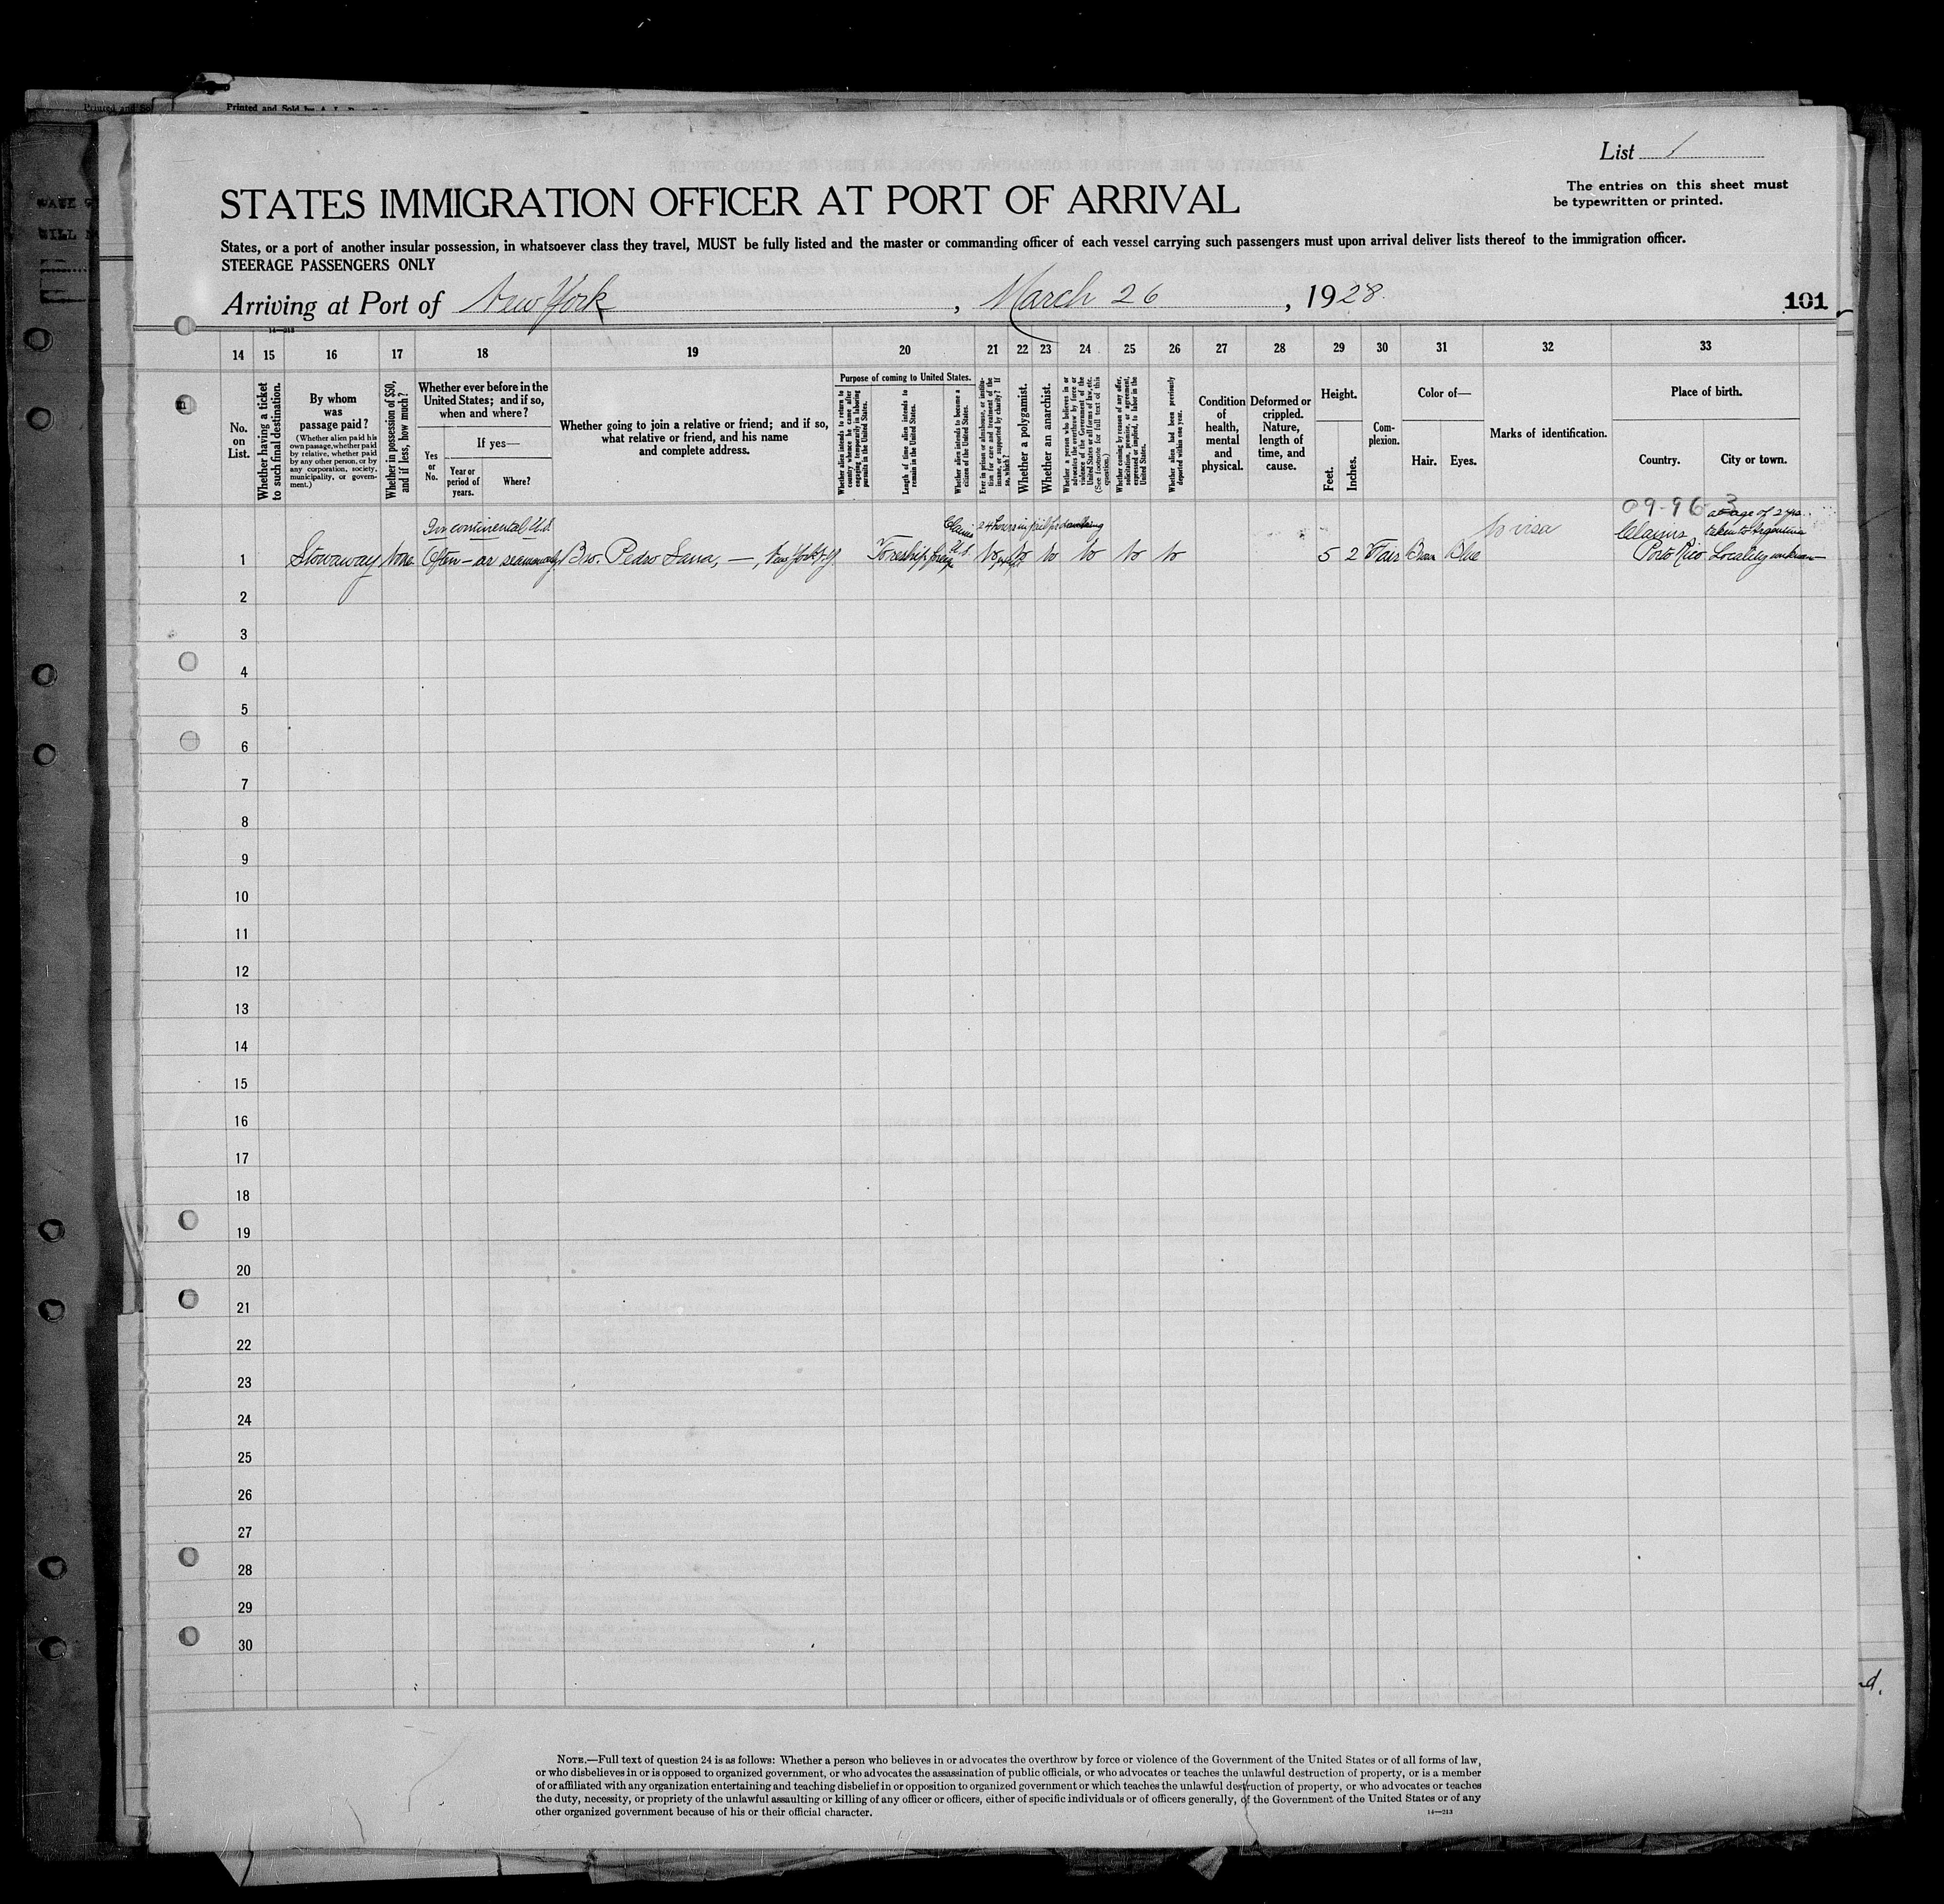 Printed and So
Printed and Sold by A. L.
List 1
The entries on this sheet must
be typewritten or printed.
STATES IMMIGRATION OFFICER AT PORT OF ARRIVAL
States, or a port of another insular possession, in whatsoever class they travel, MUST be fully listed and the master or commanding officer of each vessel carrying such passengers must upon arrival deliver lists thereof to the immigration officer.
STEERAGE PASSENGERS ONLY
Arriving at Port of New York, March 26, 1928.
101
14—213
14 15 16 17 18 19 20 21 22 23 24 25 26 27 28 29 30 31 32 33
No.
on
List.
Whether having a ticket
to such final destination.
By whom
was
passage paid?
(Whether alien paid his
own passage, whether paid
by relative, whether paid
by any other person, or by
any corporation, society,
municipality, or govern-
ment.)
Whether in possession of $50,
and if less, how much?
Whether ever before in the
United States; and if so,
when and where?
Yes
or
No.
If yes—
Year or
period of
years.
Where?
Whether going to join a relative or friend; and if so,
what relative or friend, and his name
and complete address.
Purpose of coming to United States.
Whether alien intends to return to
country whence he came after
engaging temporarily in laboring
pursuits in the United States.
Length of time alien intends to
remain in the United States.
Whether alien intends to become a
citizen of the United States.
Ever in prison or almshouse, or institu-
tion for care and treatment of the
insane, or supported by charity? If
so, which?
Whether a polygamist.
Whether an anarchist.
Whether a person who believes in or
advocates the overthrow by force or
violence of the Government of the
United States or all forms of law, etc.
(See footnote for full text of this
question.)
Whether coming by reason of any offer,
solicitation, promise, or agreement,
expressed or implied, to labor in the
United States.
Whether alien had been previously
deported within one year.
Condition
of
health,
mental
and
physical.
Deformed or
crippled.
Nature,
length of
time, and
cause.
Height.
Feet.
Inches.
Com-
plexion.
Color of—
Hair.
Eyes.
Marks of identification.
Place of birth.
Country.
City or town.
09-96 3 at age of 2 yrs.
In continental U.S. Claims 24 hours in jail for No visa Claims taken to Argentina
1 Stowaway None Often - as seaman Bro. Pedro — New York N.Y. U.S. No No No No No No 5 2 Fair Brown Blue Porto Rico Locality unknown
2
3
4
5
6
7
8
9
10
11
12
13
14
15
16
17
18
19
20
21
22
23
24
25
26
27
28
29
30
d.
NOTE.—Full text of question 24 is as follows: Whether a person who believes in or advocates the overthrow by force or violence of the Government of the United States or of all forms of law,
or who disbelieves in or is opposed to organized government, or who advocates the assassination of public officials, or who advocates or teaches the unlawful destruction of property, or is a member
of or affiliated with any organization entertaining and teaching disbelief in or opposition to organized government or which teaches the unlawful destruction of property, or who advocates or teaches
the duty, necessity, or propriety of the unlawful assaulting or killing of any officer or officers, either of specific individuals or of officers generally, of the Government of the United States or of any
other organized government because of his or their official character.
14—213